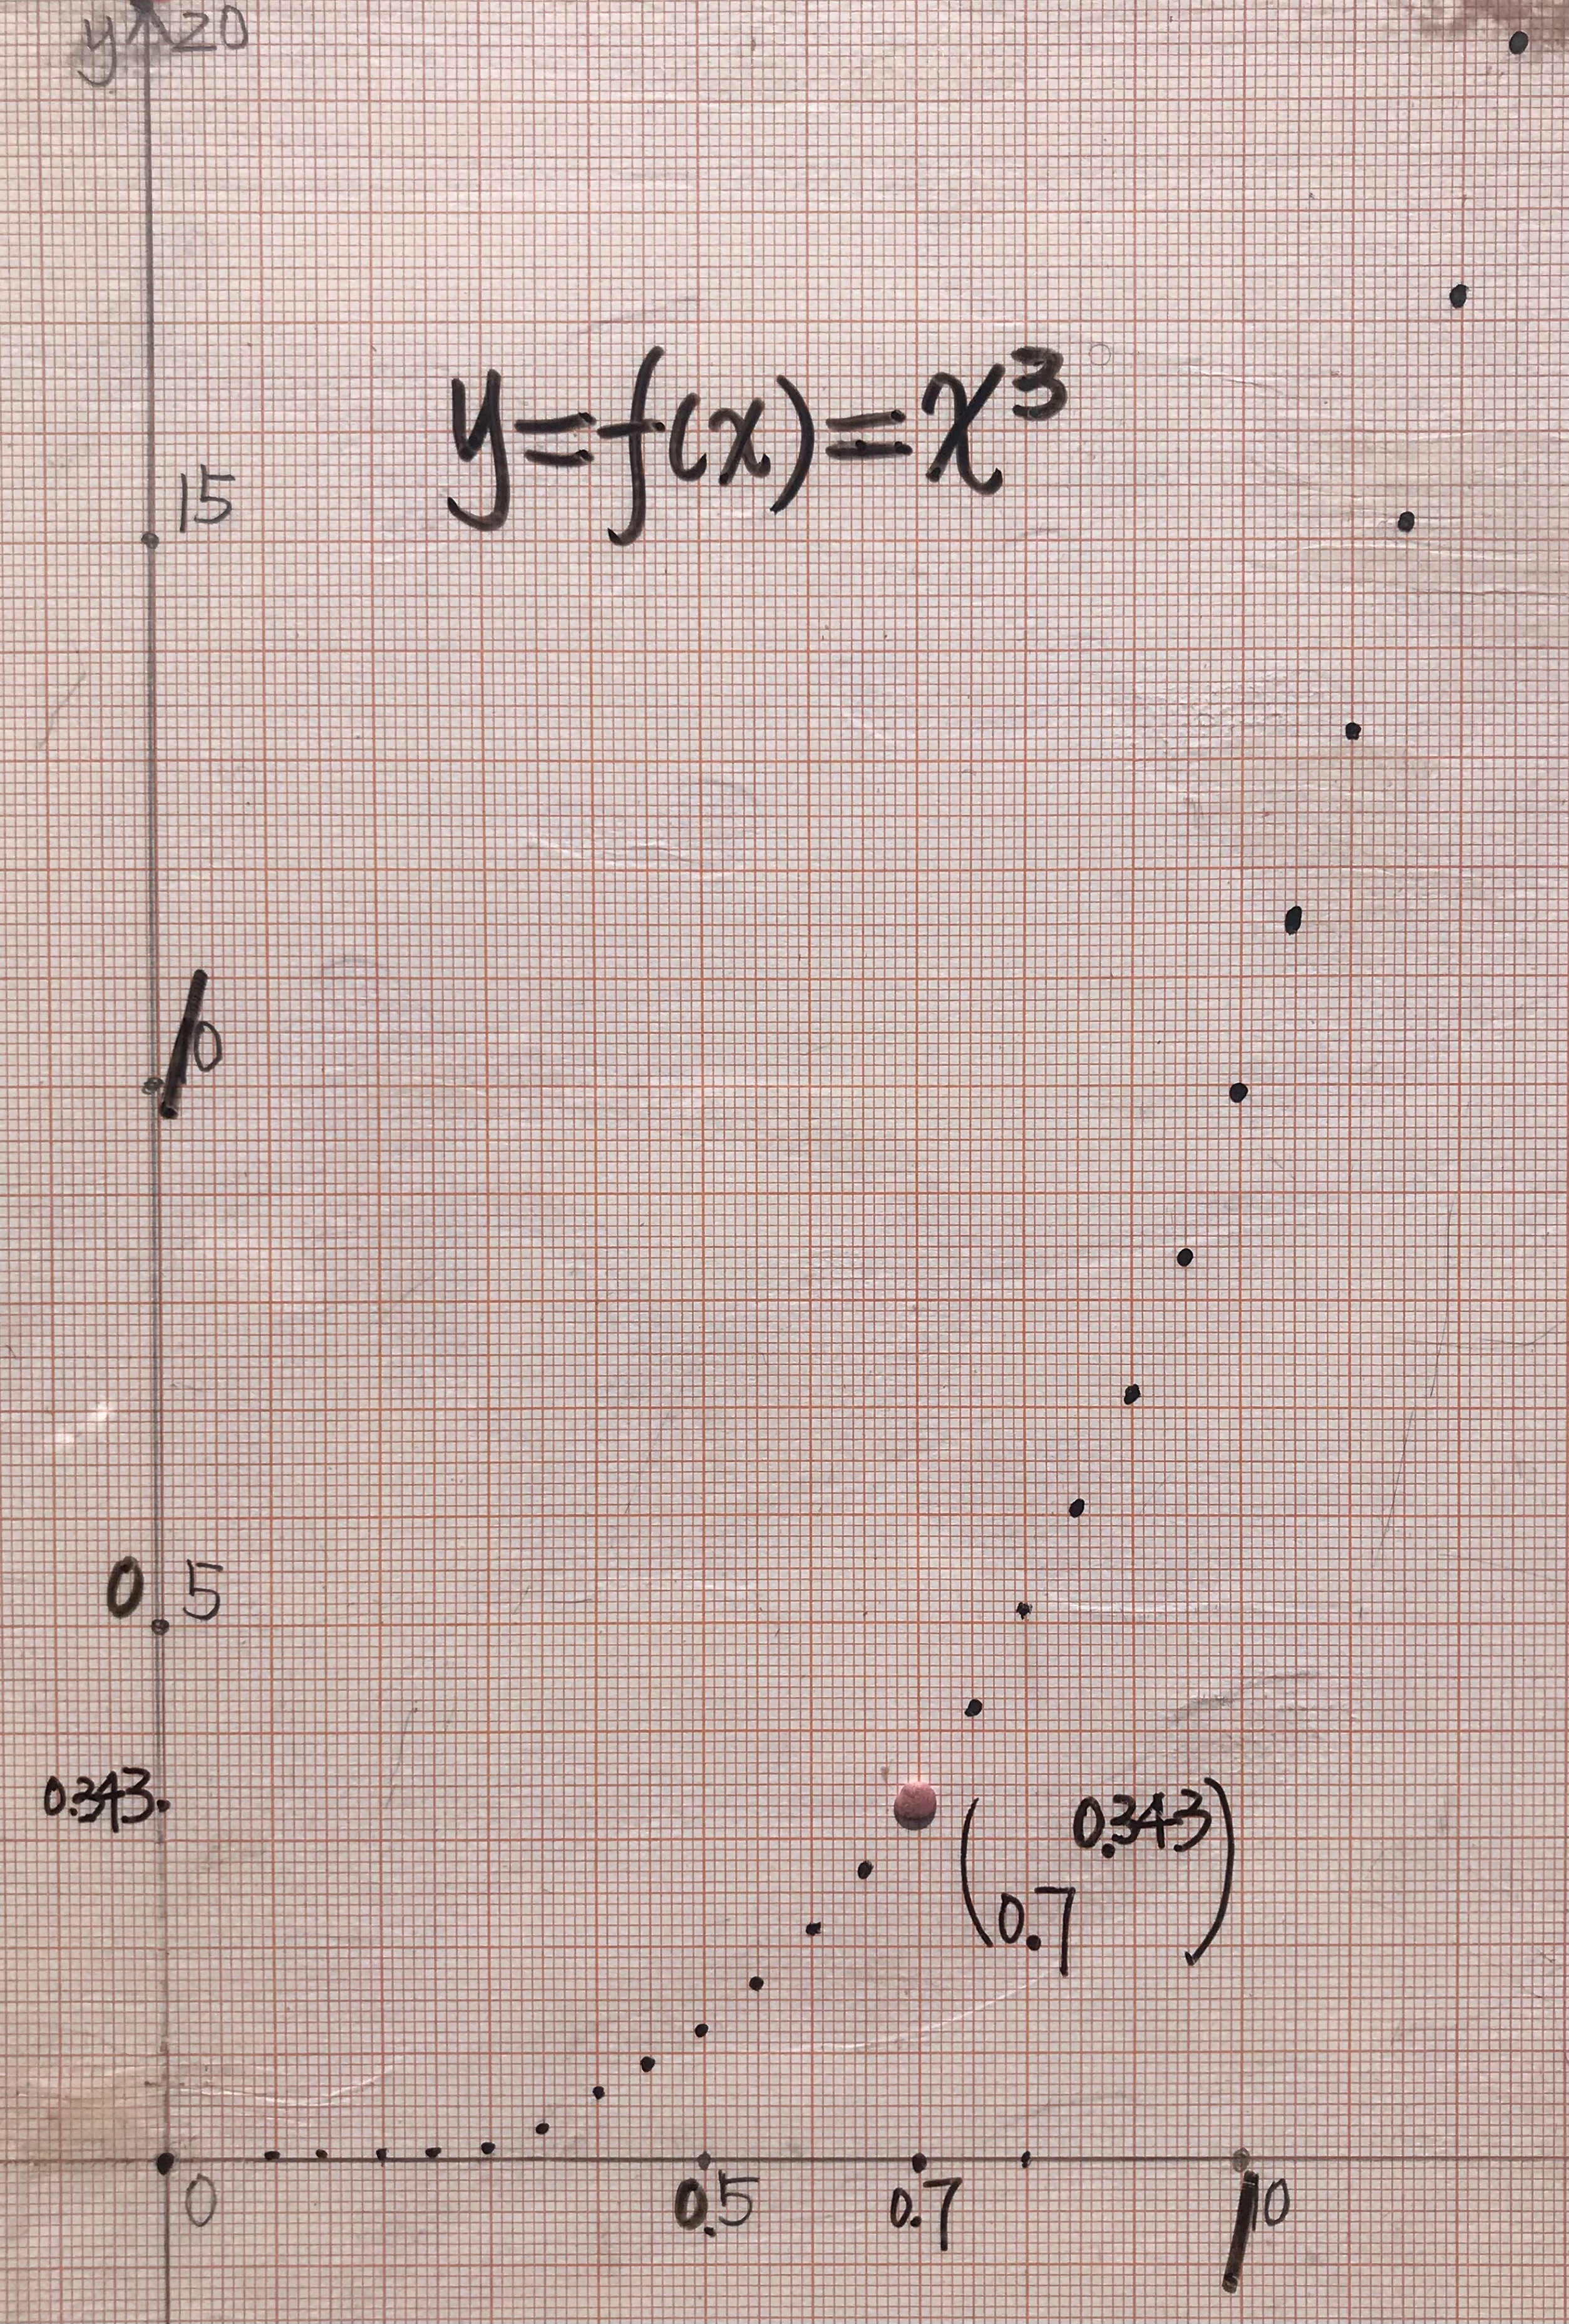 y 20
y=f(x)=x³
15
10
0.5
0.343
(0.7 0.343)
0
0.5
0.7
10